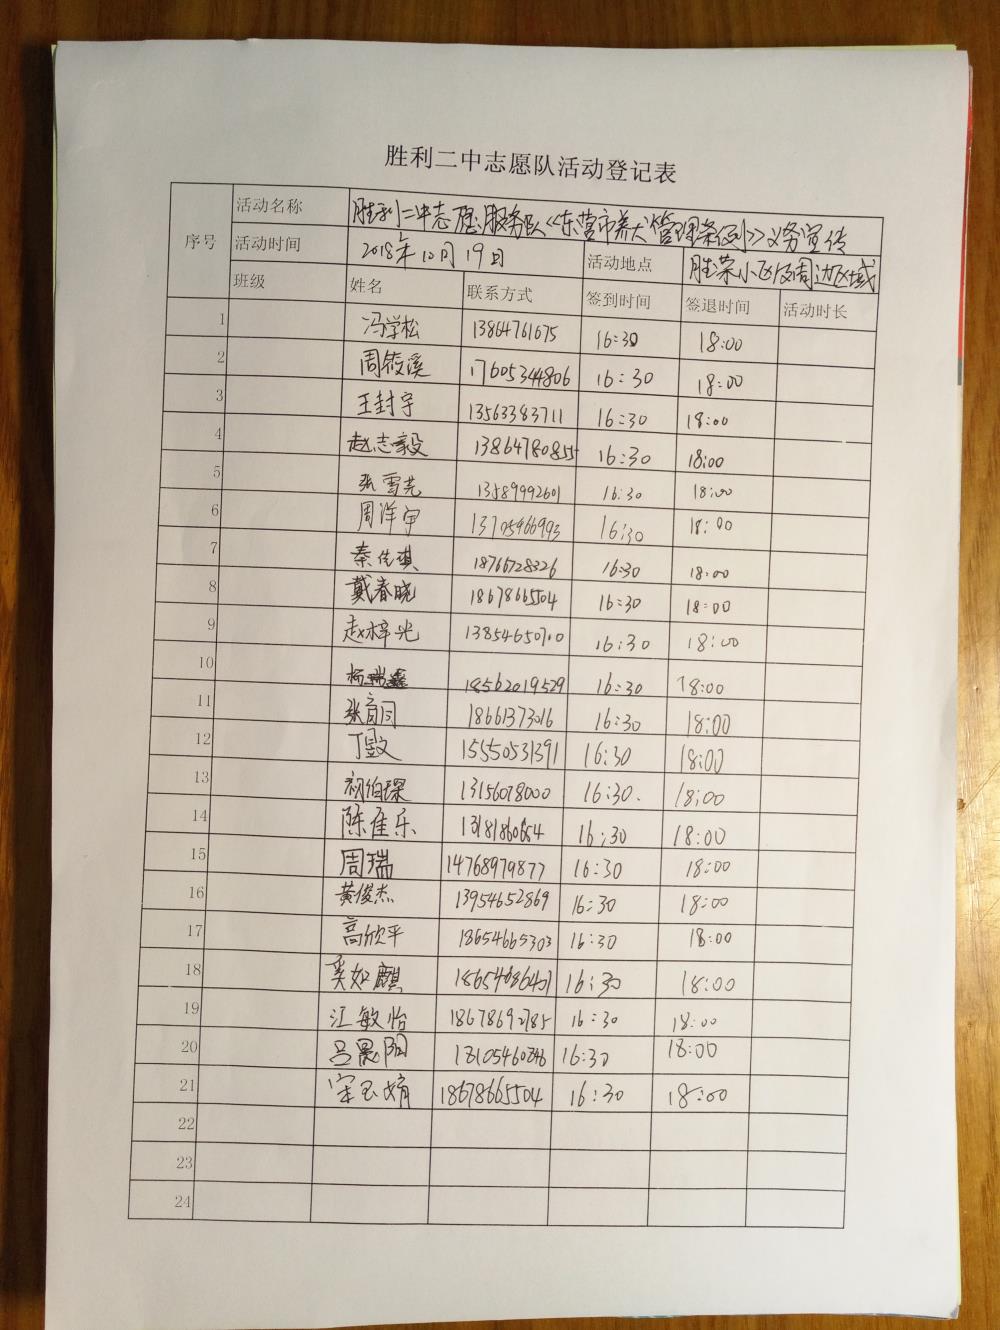 胜利二中志愿队活动登记表
序号 活动名称 胜利二中志愿服务队《东营市养犬管理条例》义务宣传
活动时间 2018年10月19日 活动地点 胜荣小区及周边区域
班级 姓名 联系方式 签到时间 签退时间 活动时长
1 冯学松 13864761675 16:30 18:00
2 周筱溪 17605344806 16:30 18:00
3 王封宇 13563383711 16:30 18:00
4 赵志毅 13864780855 16:30 18:00
5 张雪尧 13589992601 16:30 18:00
6 周洋宇 13705466993 16:30 18:00
7 秦佳琪 18766728326 16:30 18:00
8 戴春晓 18678665504 16:30 18:00
9 赵梓光 13854650700 16:30 18:00
10 杨瑞鑫 18562019529 16:30 18:00
11 张育闫 18661373016 16:30 18:00
12 丁毅 15550531391 16:30 18:00
13 初伯琛 13156078000 16:30. 18:00
14 陈佳乐 13181860654 16:30 18:00
15 周瑞 14768979877 16:30 18:00
16 黄俊杰 13954652869 16:30 18:00
17 高欣平 18654665303 16:30 18:00
18 奚如麒 16:30 18:00
19 江敏怡 18678692785 16:30 18:00
20 吕晨阳 16:30 18:00
21 宋玉婧 18678665504 16:30 18:00
22
23
24